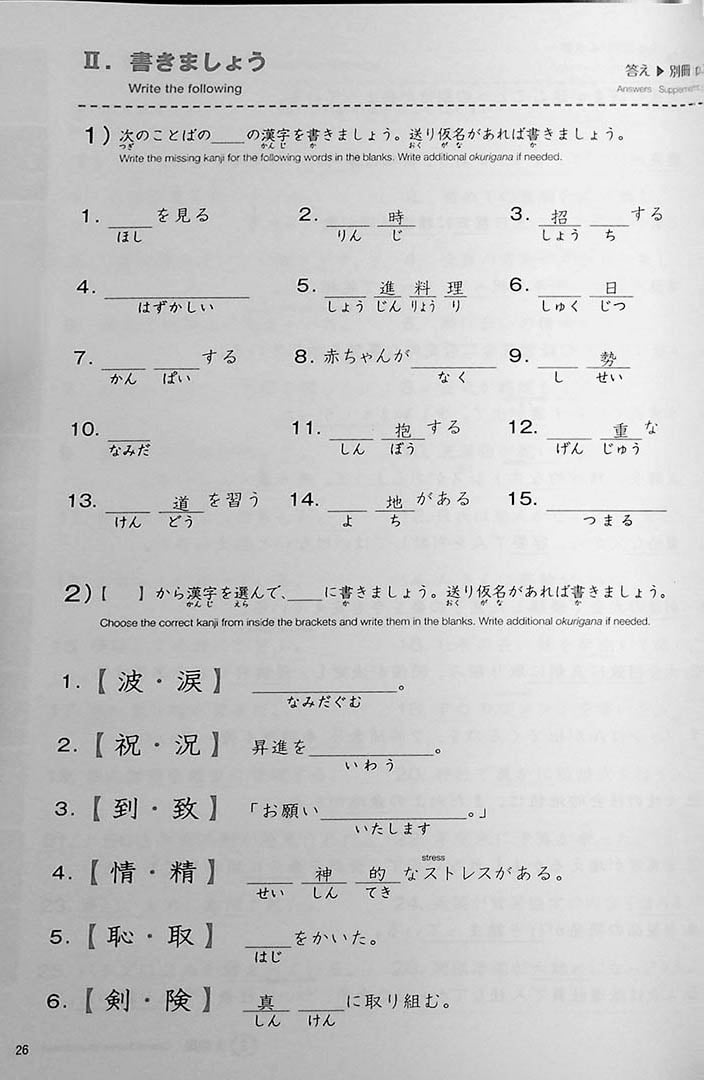 Ⅱ. 書きましょう
Write the following
答え ▶ 別冊
Answers
1) 次のことばの___の漢字を書きましょう。送り仮名があれば書きましょう。
つぎ かんじ か おく がな か
Write the missing kanji for the following words in the blanks. Write additional okurigana if needed.
1. ____を見る 2. ____ 時 3. 招 ____する
ほし りん じ しょう ち
4. ____________ 5. ____ 進 料 理 6. ____ 日
はずかしい しょう じん りょう り しゅく じつ
7. ____ ____する 8. 赤ちゃんが________ 9. ____ 勢
かん ぱい なく し せい
10. ____ 11. ____ 抱する 12. ____ 重な
なみだ しん ぼう げん じゅう
13. ____ 道を習う 14. ____ 地がある 15. ____________
けん どう よ ち つまる
2)【 】から漢字を選んで、___に書きましょう。送り仮名があれば書きましょう。
かんじ えら か おく がな か
Choose the correct kanji from inside the brackets and write them in the blanks. Write additional okurigana if needed.
1.【波・涙】 ____________。
なみだぐむ
2.【祝・況】 昇進を__________。
いわう
3.【到・致】 「お願い____________。」
いたします
stress
4.【情・精】 ____ 神 的なストレスがある。
せい しん てき
5.【恥・取】 ____をかいた。
はじ
6.【剣・険】 真 ____に取り組む。
しん けん
26